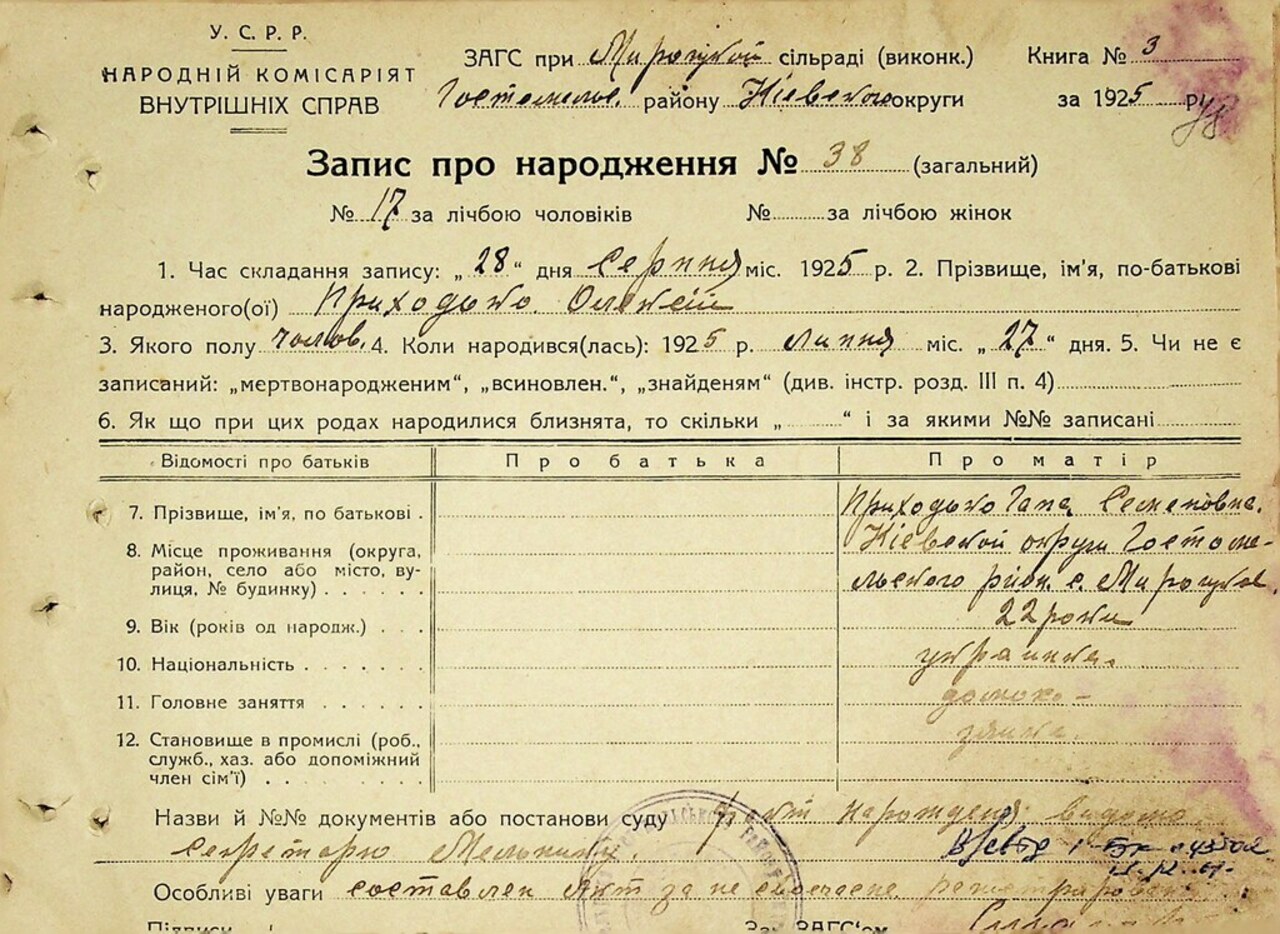 У. С. Р. Р.
НАРОДНІЙ КОМІСАРІЯТ
ВНУТРІШНІХ СПРАВ
ЗАГС при Мироцкой сільраді (виконк.)
Гостомельс. району Кіевского округи
Книга № 3
за 1925 р.
Запис про народження № 38 (загальний)
№ 17 за лічбою чоловіків №.........за лічбою жінок
1. Час складання запису: „28“ дня Серпня міс. 1925 р. 2. Прізвище, ім'я, по-батькові
народженого(ої) Приходько Олексій
3. Якого полу чолов. 4. Коли народився(лась): 1925 р. липня міс. „27“ дня. 5. Чи не є
записаний: „мертвонародженим“, „всиновлен.“, „знайденям“ (див. інстр. розд. III п. 4)
6. Як що при цих родах народилися близнята, то скільки „.........“ і за якими №№ записані
Відомості про батьків Про батька Про матір
7. Прізвище, ім'я, по батькові . Приходько Гапа Семеновна.
8. Місце проживання (округа,
район, село або місто, ву-
лиця, № будинку) . . . . . .
Кіевской округи Гостоме-
льского район с. Мироцкое
9. Вік (років од народж.) . . . 22 роки
10. Національність . . . . . . . українка.
11. Головне заняття . . . . . . домохо-
зяйка.
12. Становище в промислі (роб.,
служб., хаз. або допоміжний
член сім'ї) . . . . . . . . .
Назви й №№ документів або постанови суду Факт народження видомо
Секретарю Мельнику.
Особливі уваги составлен Акт за не своечасне
Підписи
Зав. ЗАГС'ом